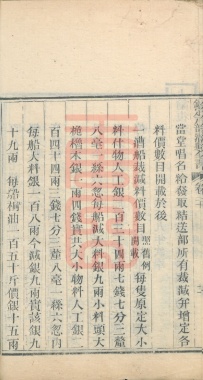 當堂唱名給發取結送部所有裁減并增定各
料價數目開載於後
一漕船裁減料價數目照舊例開載每隻原定大小
料什物人工銀二百三十四兩七錢七分三釐
八毫一絲六忽每船減大料銀九兩小料頭大
桅檀木銀一兩四錢實共大小物料人工銀二
百四十四兩一錢七分三釐八毫一絲六忽內
每船大料銀一百八兩今減銀九兩實該銀九
十九兩 每船桐油一百五十斤價銀十五兩